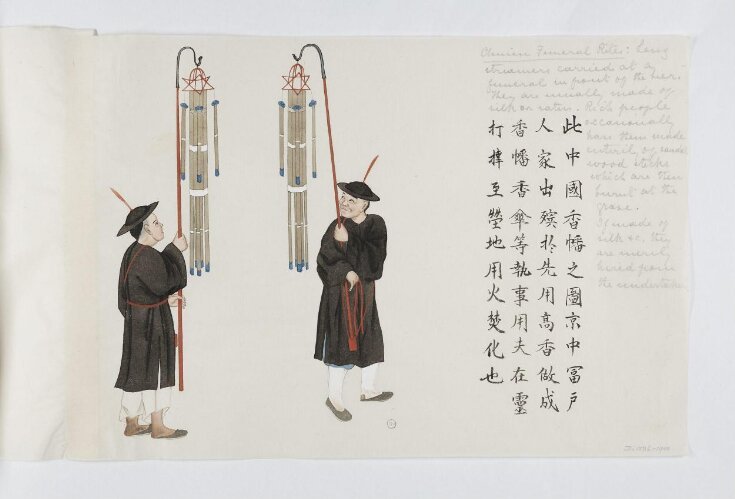 此中國香幡之圖京中冨戶
人家出殯扵先用高香做成
香幡香傘等執事用夫在靈
打擡至塋地用火焚化也
Chinese Funeral Rites: Long
streamers carried at a
funeral in front of the bier.
They are usually made of
silk or satin. Rich people
occasionally
have them made
entirely of sandal
wood sticks
which are then
burnt at the
grave.
If made of
silk &c, they
are merely
hired from
the undertaker